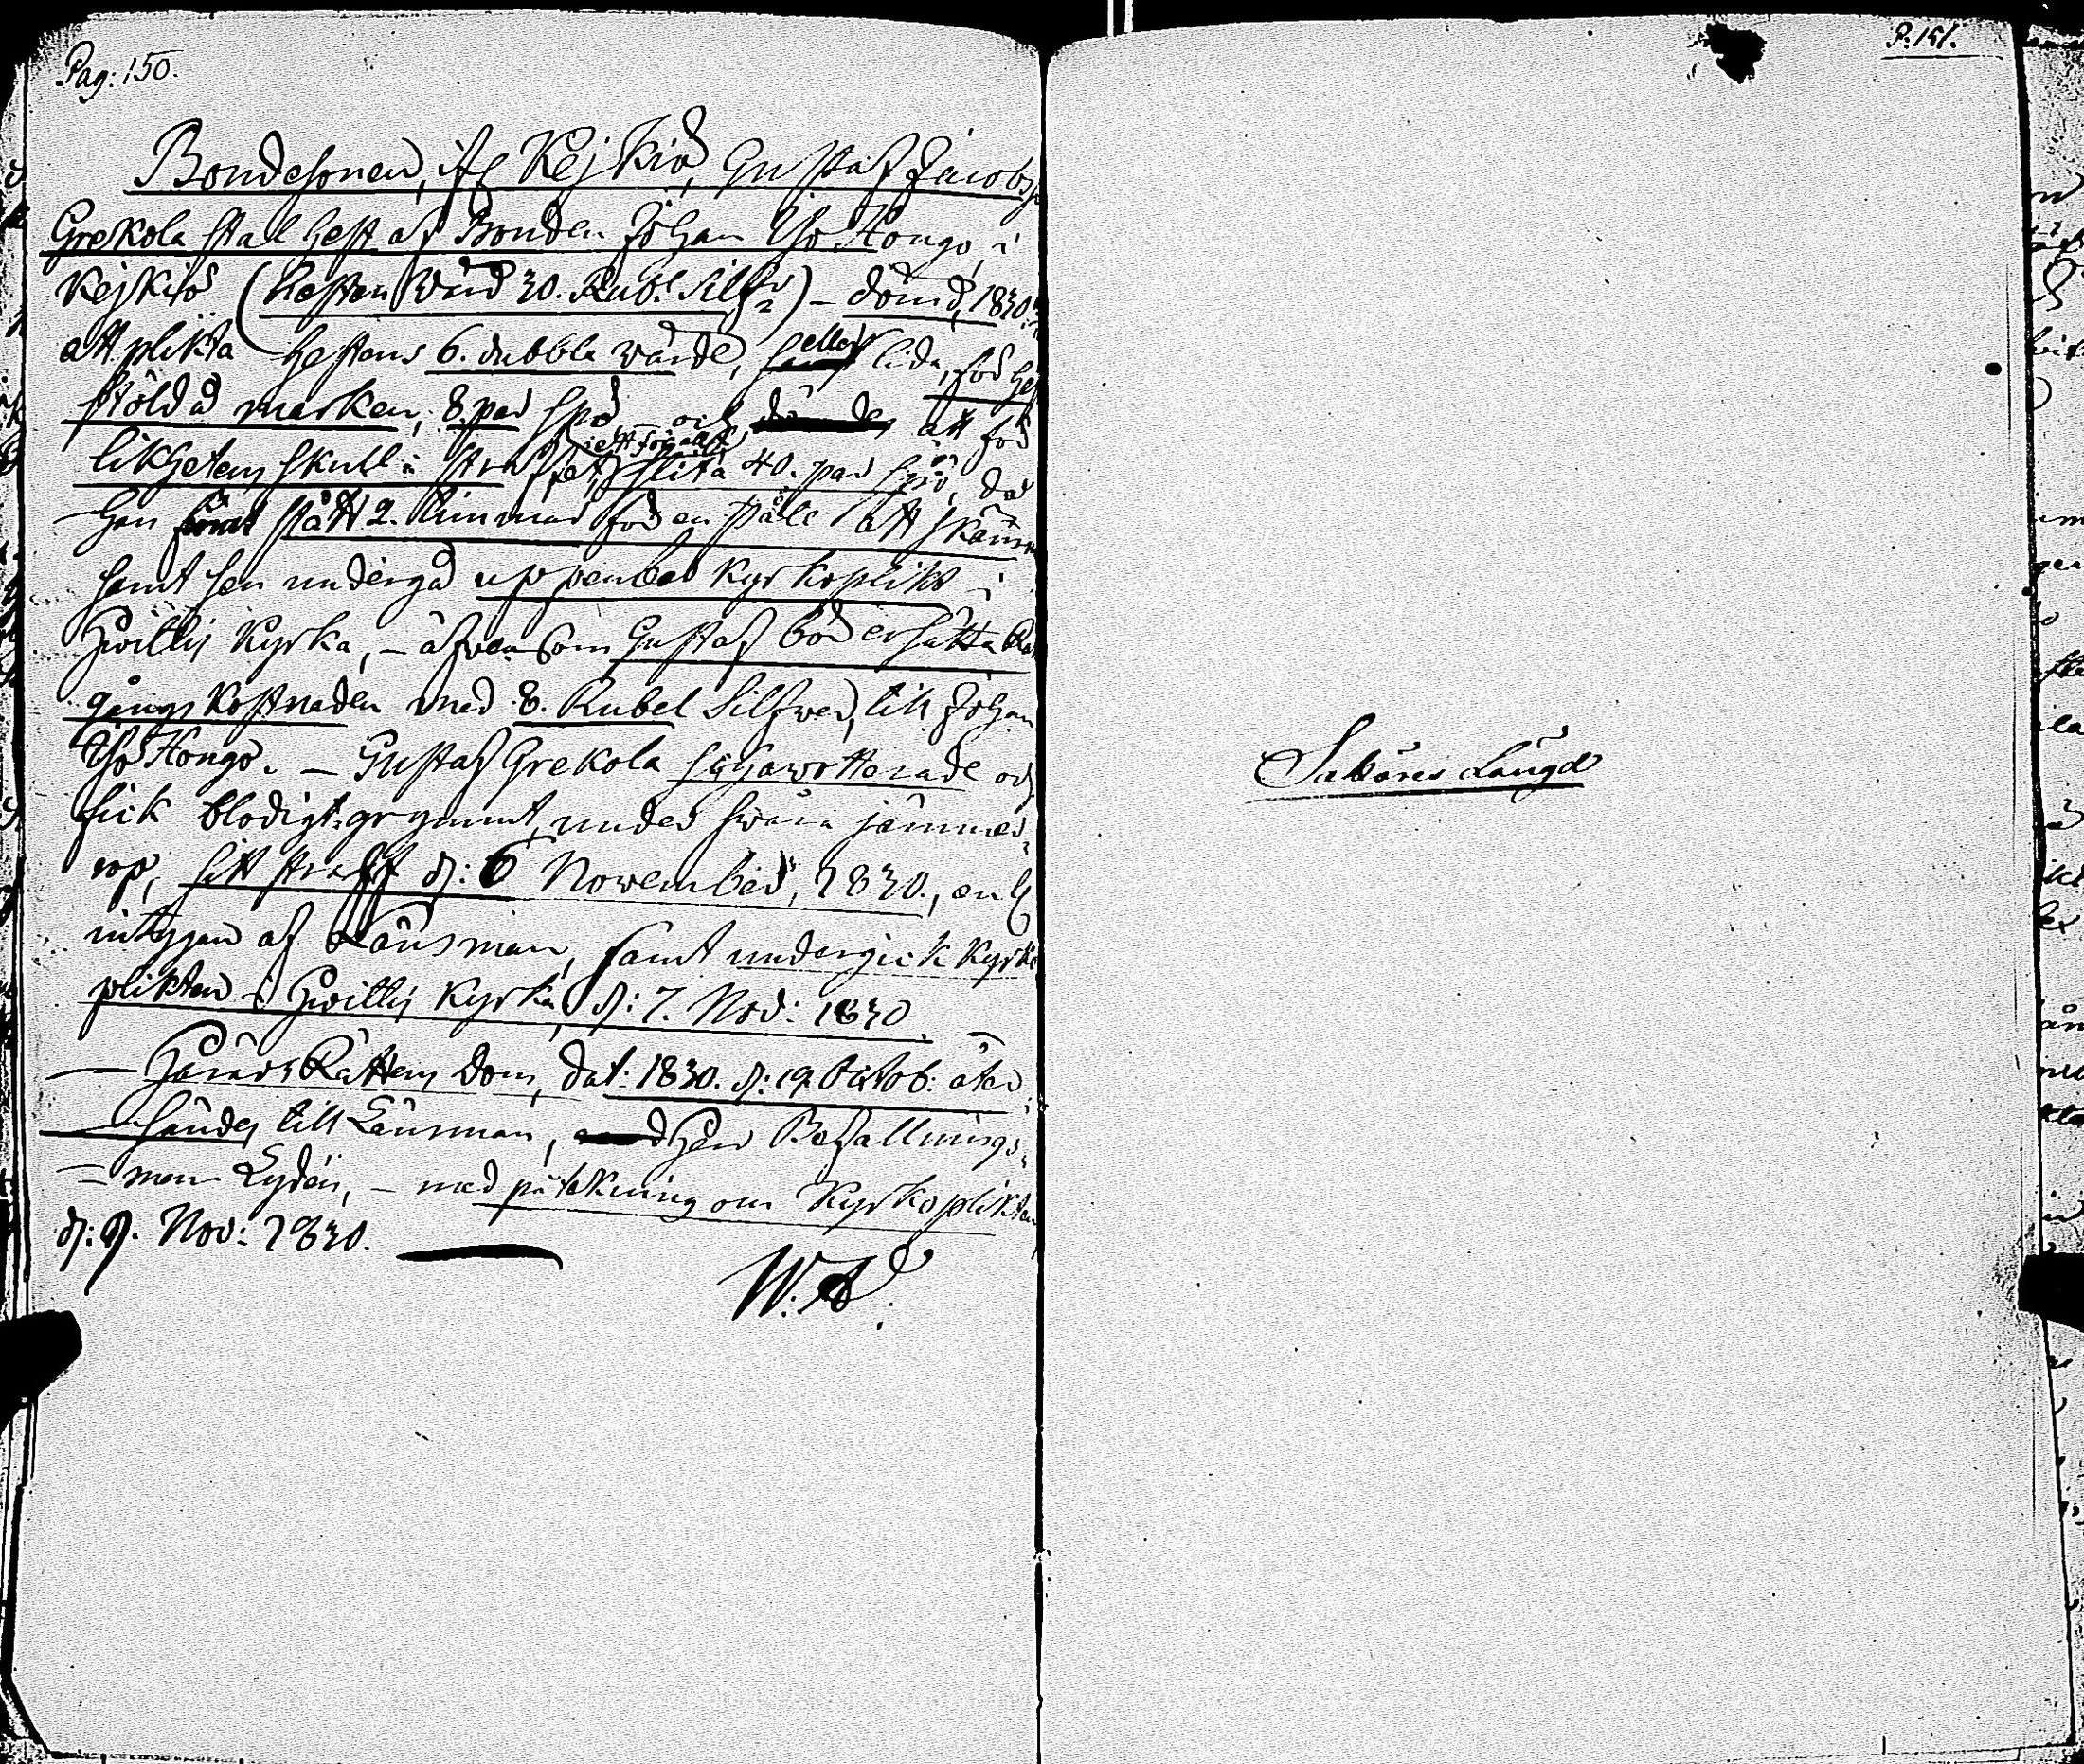 Pag: 150.
Bondesonen, ifr Kejkiö, Gustaf Jacobs
Grekola stal hest af Bonden Johan Yso Hongo, i
Kejkiö (hästen wärd 30. Rub. Silfr) – dömd, 1830
att plikta hestens 6. dubbla wärde, eller lida, för
stöld å marken, 8. par spö och att för
likhetens skull i straffet, slita 40. par spö, då
han stått 2. timmar för en påle att skämmas
samt sen undergå uppenbar Kyrkoplikt i
Hwittis Kyrka, – äfven som Gustaf bör ersätta
gångs kostnaden med 8. Rubel Silfwer, till Johan
Yso Hongo. – Gustaf Grekola och
fick blodigt, grymmt, under swåra jämmer
rop, sitt straff d: 6 November, 1830., enl
intygan af Länsman, samt undergick Kyrko
plikten i Hwittis Kyrka, d: 7. Nov: 1830.
– Härads Rättens Dom, dat: 1830. d: 19. Octob: åter
sändes till Länsman, Herr Befallnings
– man Lydén, – med påtekning om Kyrkoplikten
d: 9. Nov: 1830.
W. A.
P. 151.
Saköres Längd